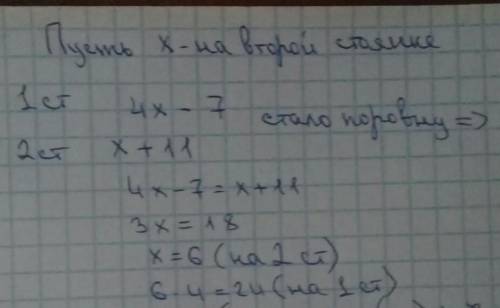 Пусть x - на второй стоянке
1 ст 4x - 7 стало поровну =>
2 ст x + 11
4x - 7 = x + 11
3x = 18
x = 6 (на 2 ст)
6 · 4 = 24 (на 1 ст)